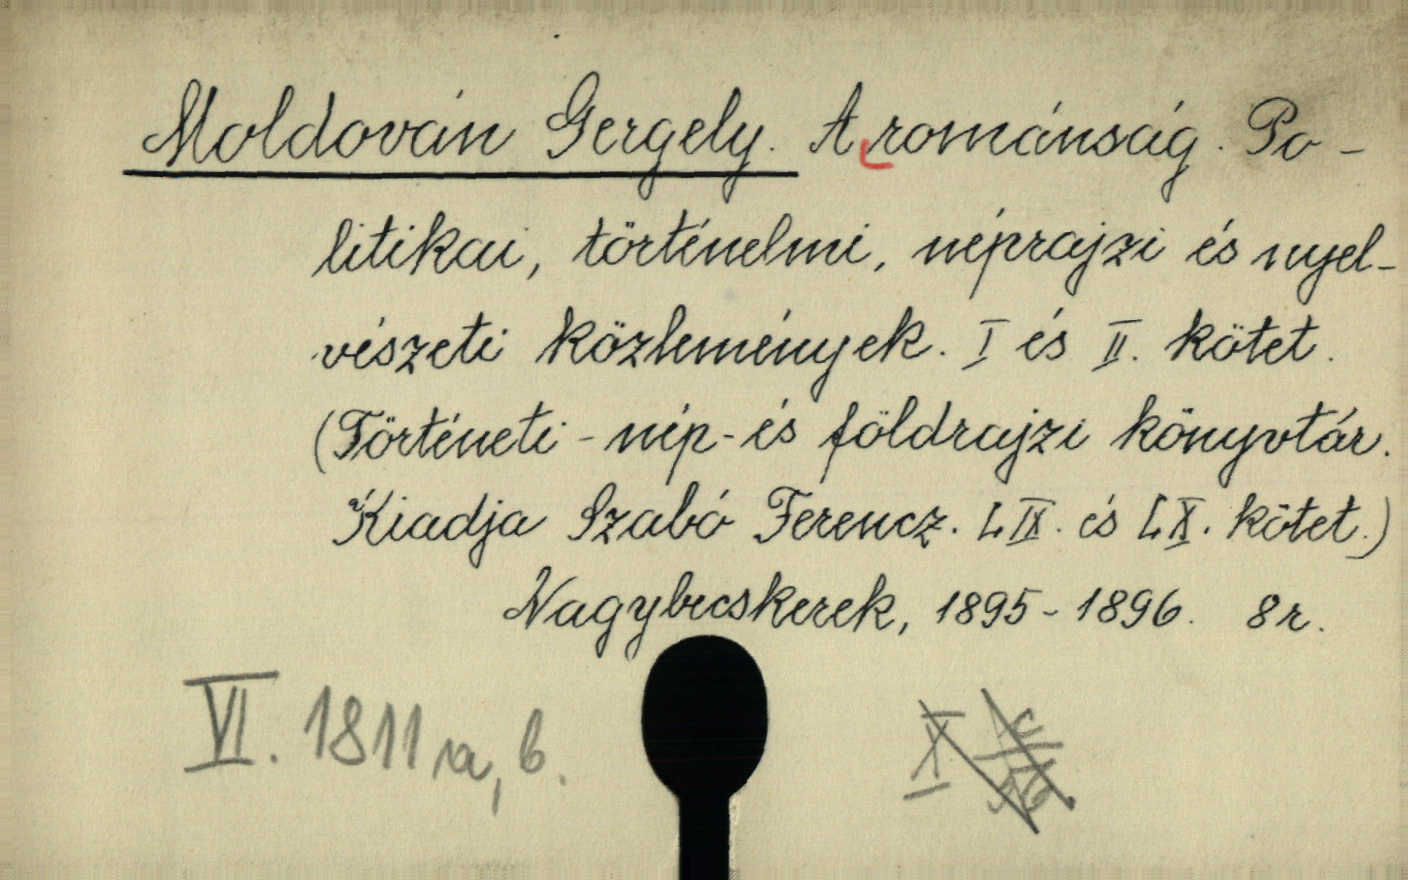 Moldován Gergely. A románság. Po-
litikai, történelmi, néprajzi és nyel-
vészeti közlemények. I és II. kötet.
(Történeti - nép- és földrajzi könyvtár.
Kiadja Szabó Ferencz. LIX. és LX. kötet.)
Nagybecskerek, 1895-1896. 8r.
VI. 1811 a, b.
X